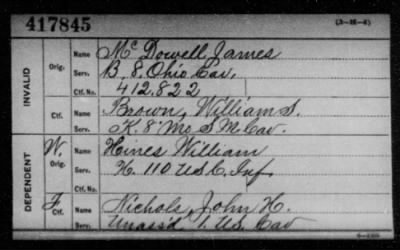 417845 (3-M-6)
INVALID
Orig. Name McDowell, James
Serv. B. 8. Ohio Cav.
Ctf. No. 412.822
Ctf. Name Brown, William S.
Serv. K. 8" Mo S M Cav.
DEPENDENT
W. Orig. Name Hines William
Serv. H. 110 U S C. Inf
Ctf. No.
F. Ctf. Name Nichols, John H.
Serv. Unass'd 1. U.S. Cav